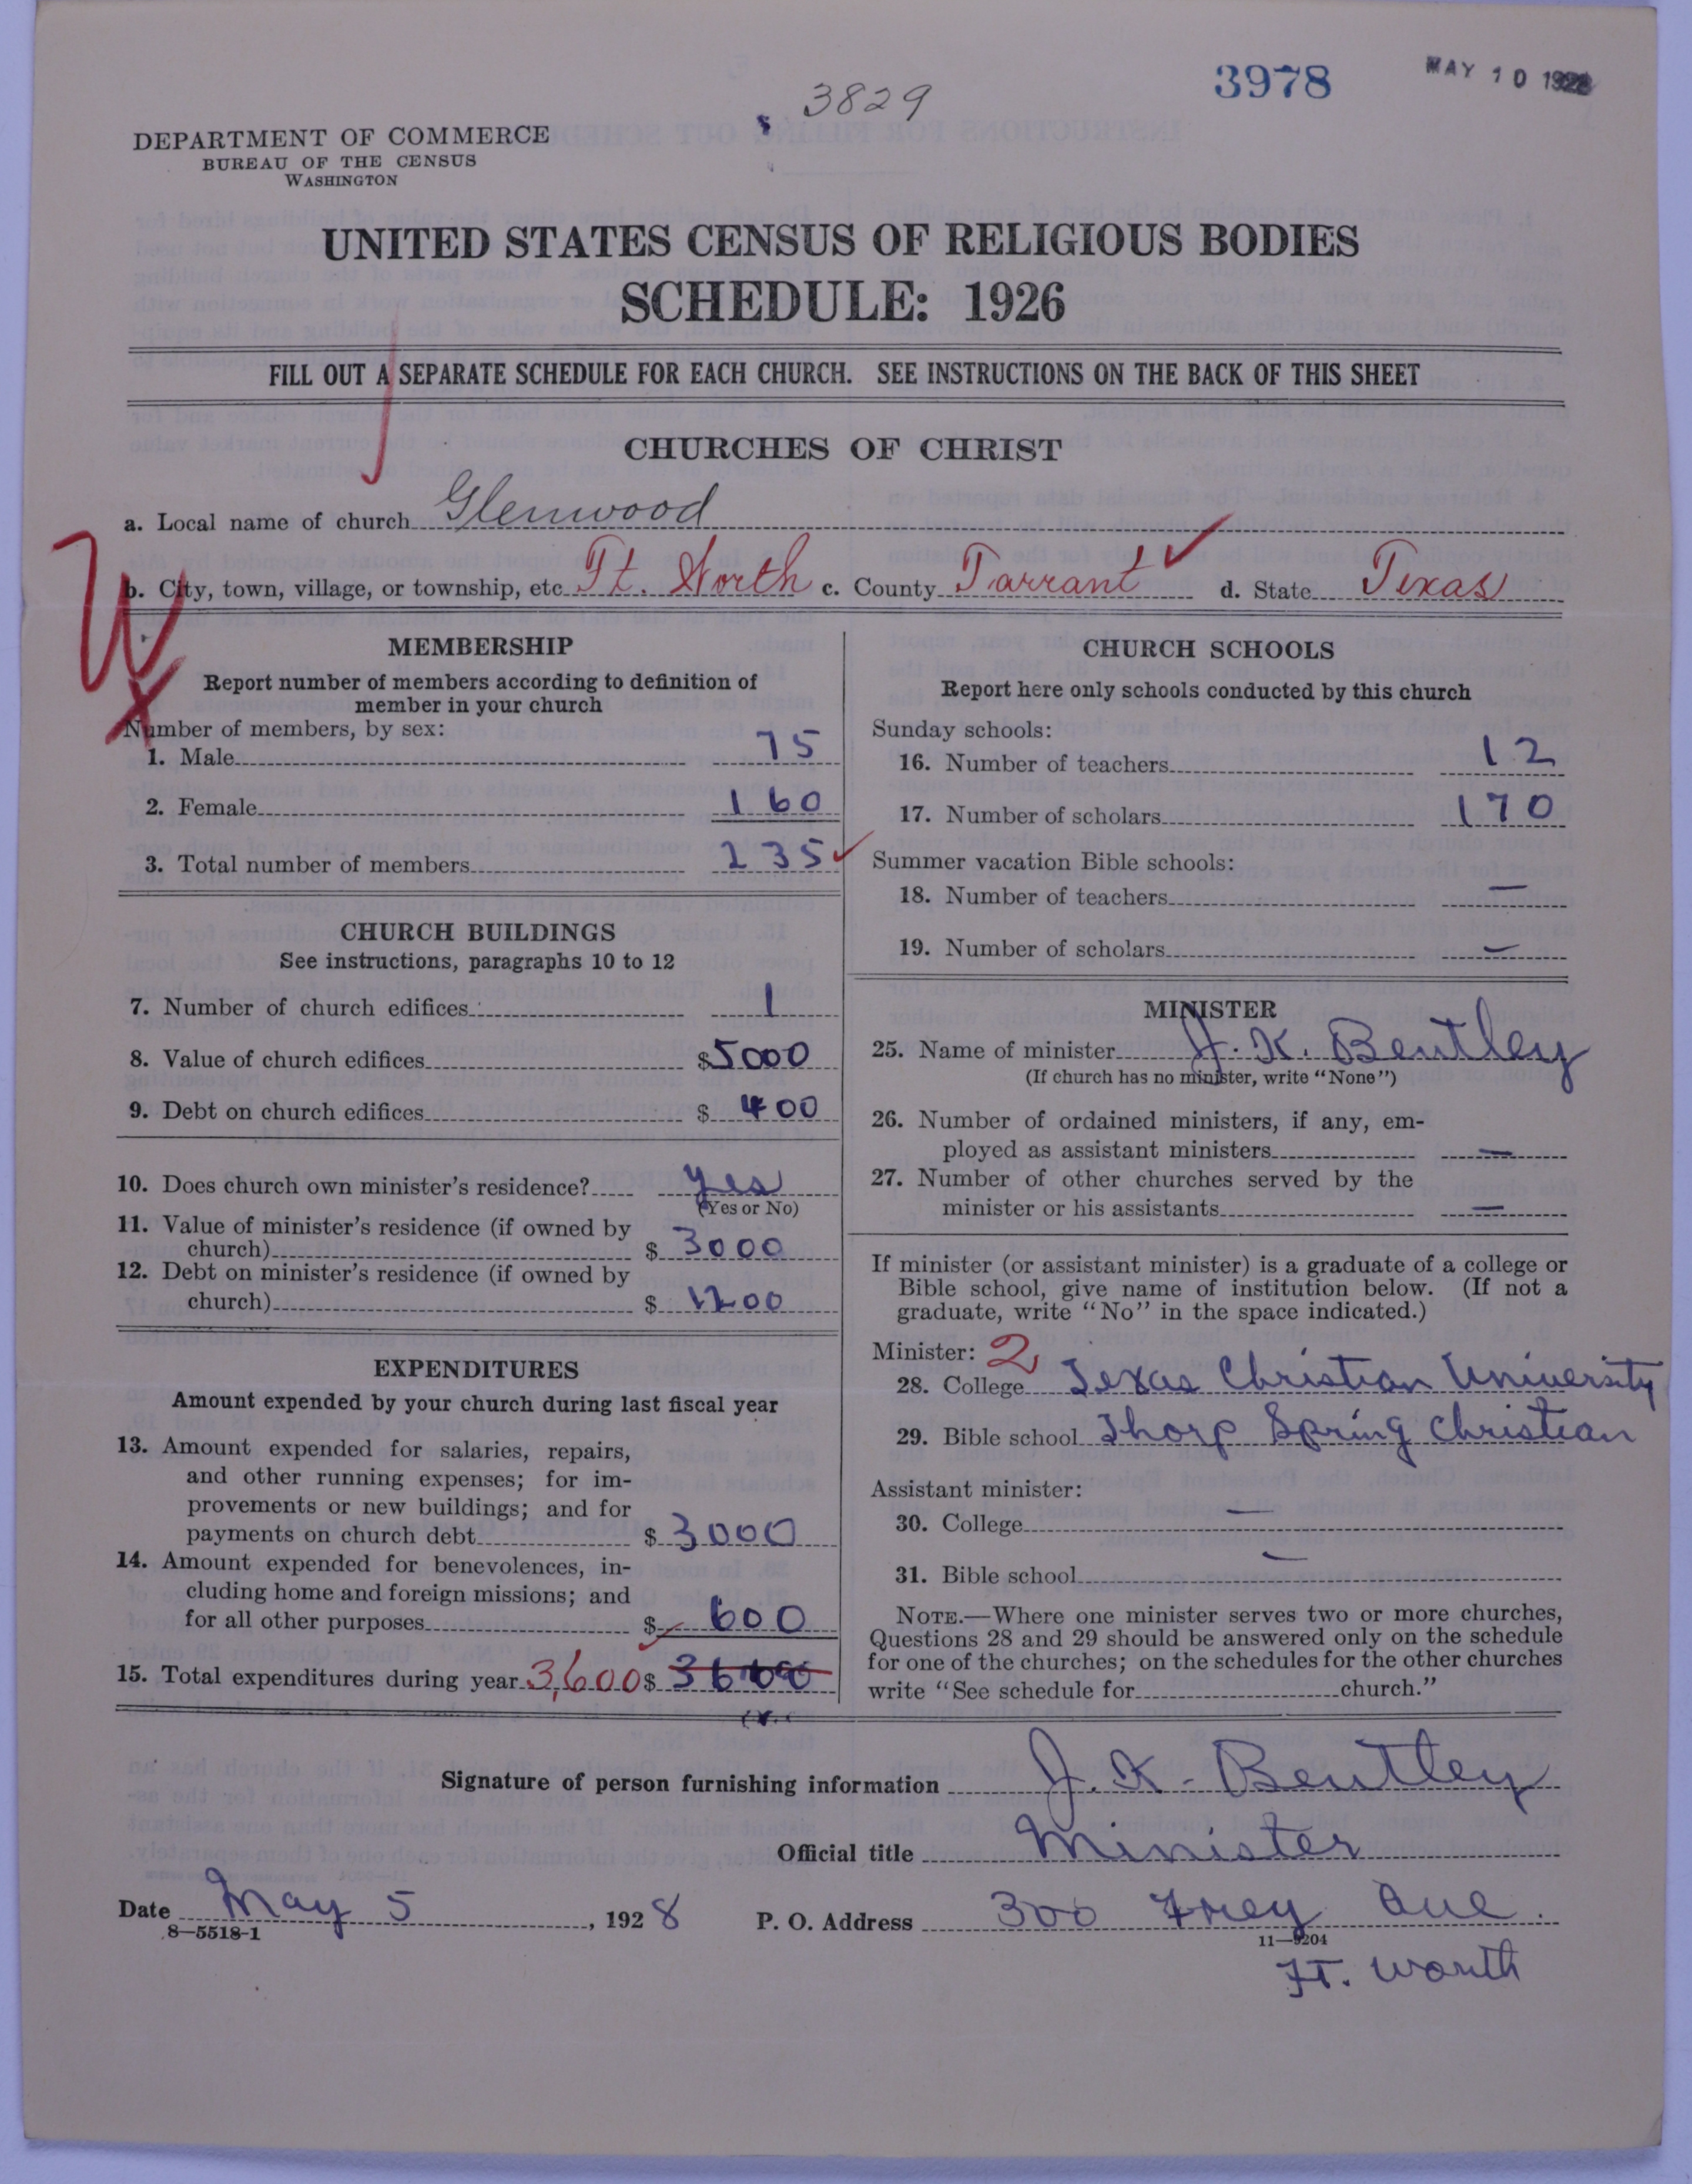 3829
3978
MAY 10 1928
DEPARTMENT OF COMMERCE
BUREAU OF THE CENSUS
WASHINGTON
UNITED STATES CENSUS OF RELIGIOUS BODIES
SCHEDULE: 1926
FILL OUT A SEPARATE SCHEDULE FOR EACH CHURCH. SEE INSTRUCTIONS ON THE BACK OF THIS SHEET
CHURCHES OF CHRIST
a. Local name of church Glenwood
b. City, town, village, or township, etc. Ft. Worth c. County Tarrant d. State Texas
MEMBERSHIP
Report number of members according to definition of
member in your church
Number of members, by sex:
1. Male 75
2. Female 160
3. Total number of members 235
CHURCH BUILDINGS
See instructions, paragraphs 10 to 12
7. Number of church edifices 1
8. Value of church edifices $5000
9. Debt on church edifices $ 400
10. Does church own minister's residence? yes
(Yes or No)
11. Value of minister's residence (if owned by
church) $ 3000
12. Debt on minister's residence (if owned by
church) $ 1200
EXPENDITURES
Amount expended by your church during last fiscal year
13. Amount expended for salaries, repairs,
and other running expenses; for im-
provements or new buildings; and for
payments on church debt $ 3000
14. Amount expended for benevolences, in-
cluding home and foreign missions; and
for all other purposes $ 600
15. Total expenditures during year 3,600 $
CHURCH SCHOOLS
Report here only schools conducted by this church
Sunday schools:
16. Number of teachers 12
17. Number of scholars 170
Summer vacation Bible schools:
18. Number of teachers —
19. Number of scholars —
MINISTER
25. Name of minister J. K. Bentley
(If church has no minister, write "None")
26. Number of ordained ministers, if any, em-
ployed as assistant ministers —
27. Number of other churches served by the
minister or his assistants —
If minister (or assistant minister) is a graduate of a college or
Bible school, give name of institution below. (If not a
graduate, write "No" in the space indicated.)
Minister: 2
28. College Texas Christian University
29. Bible school Thorp Spring Christian
Assistant minister:
30. College —
31. Bible school —
NOTE.—Where one minister serves two or more churches,
Questions 28 and 29 should be answered only on the schedule
for one of the churches; on the schedules for the other churches
write "See schedule for church."
Signature of person furnishing information J. K. Bentley
Official title Minister
Date May 5, 1928 P. O. Address 300 Frey Ave.
8—5518-1
11—9204
Ft. Worth